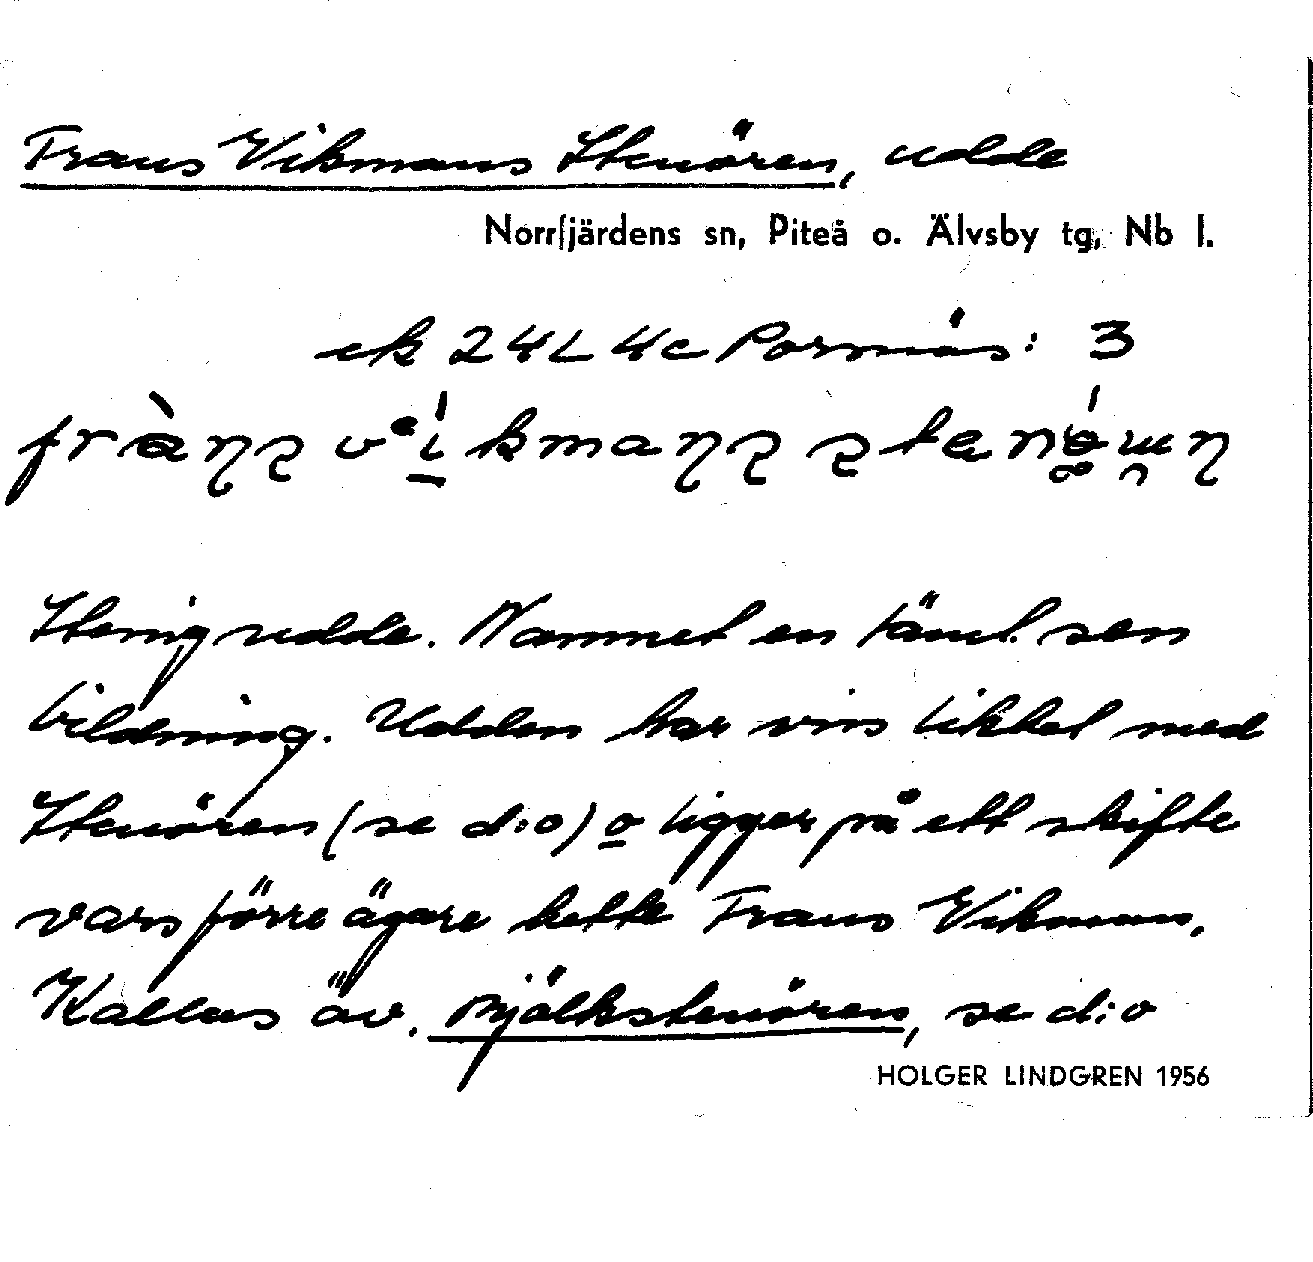 Frans Vikmans Stenören, udde
Norrfjärdens sn, Piteå o. Älvsby tg, Nb l.
ek 24 L 4c Porsnäs: 3
Stenig udde. Namnet en täml. sen
bildning. Udden har vms likhet med
Stenören (se d:o) o ligger på ett skifte
vars förre ägare hette Frans Vikman.
Kallas äv. Mjölkstenören, se d:o
HOLGER LINDGREN 1956